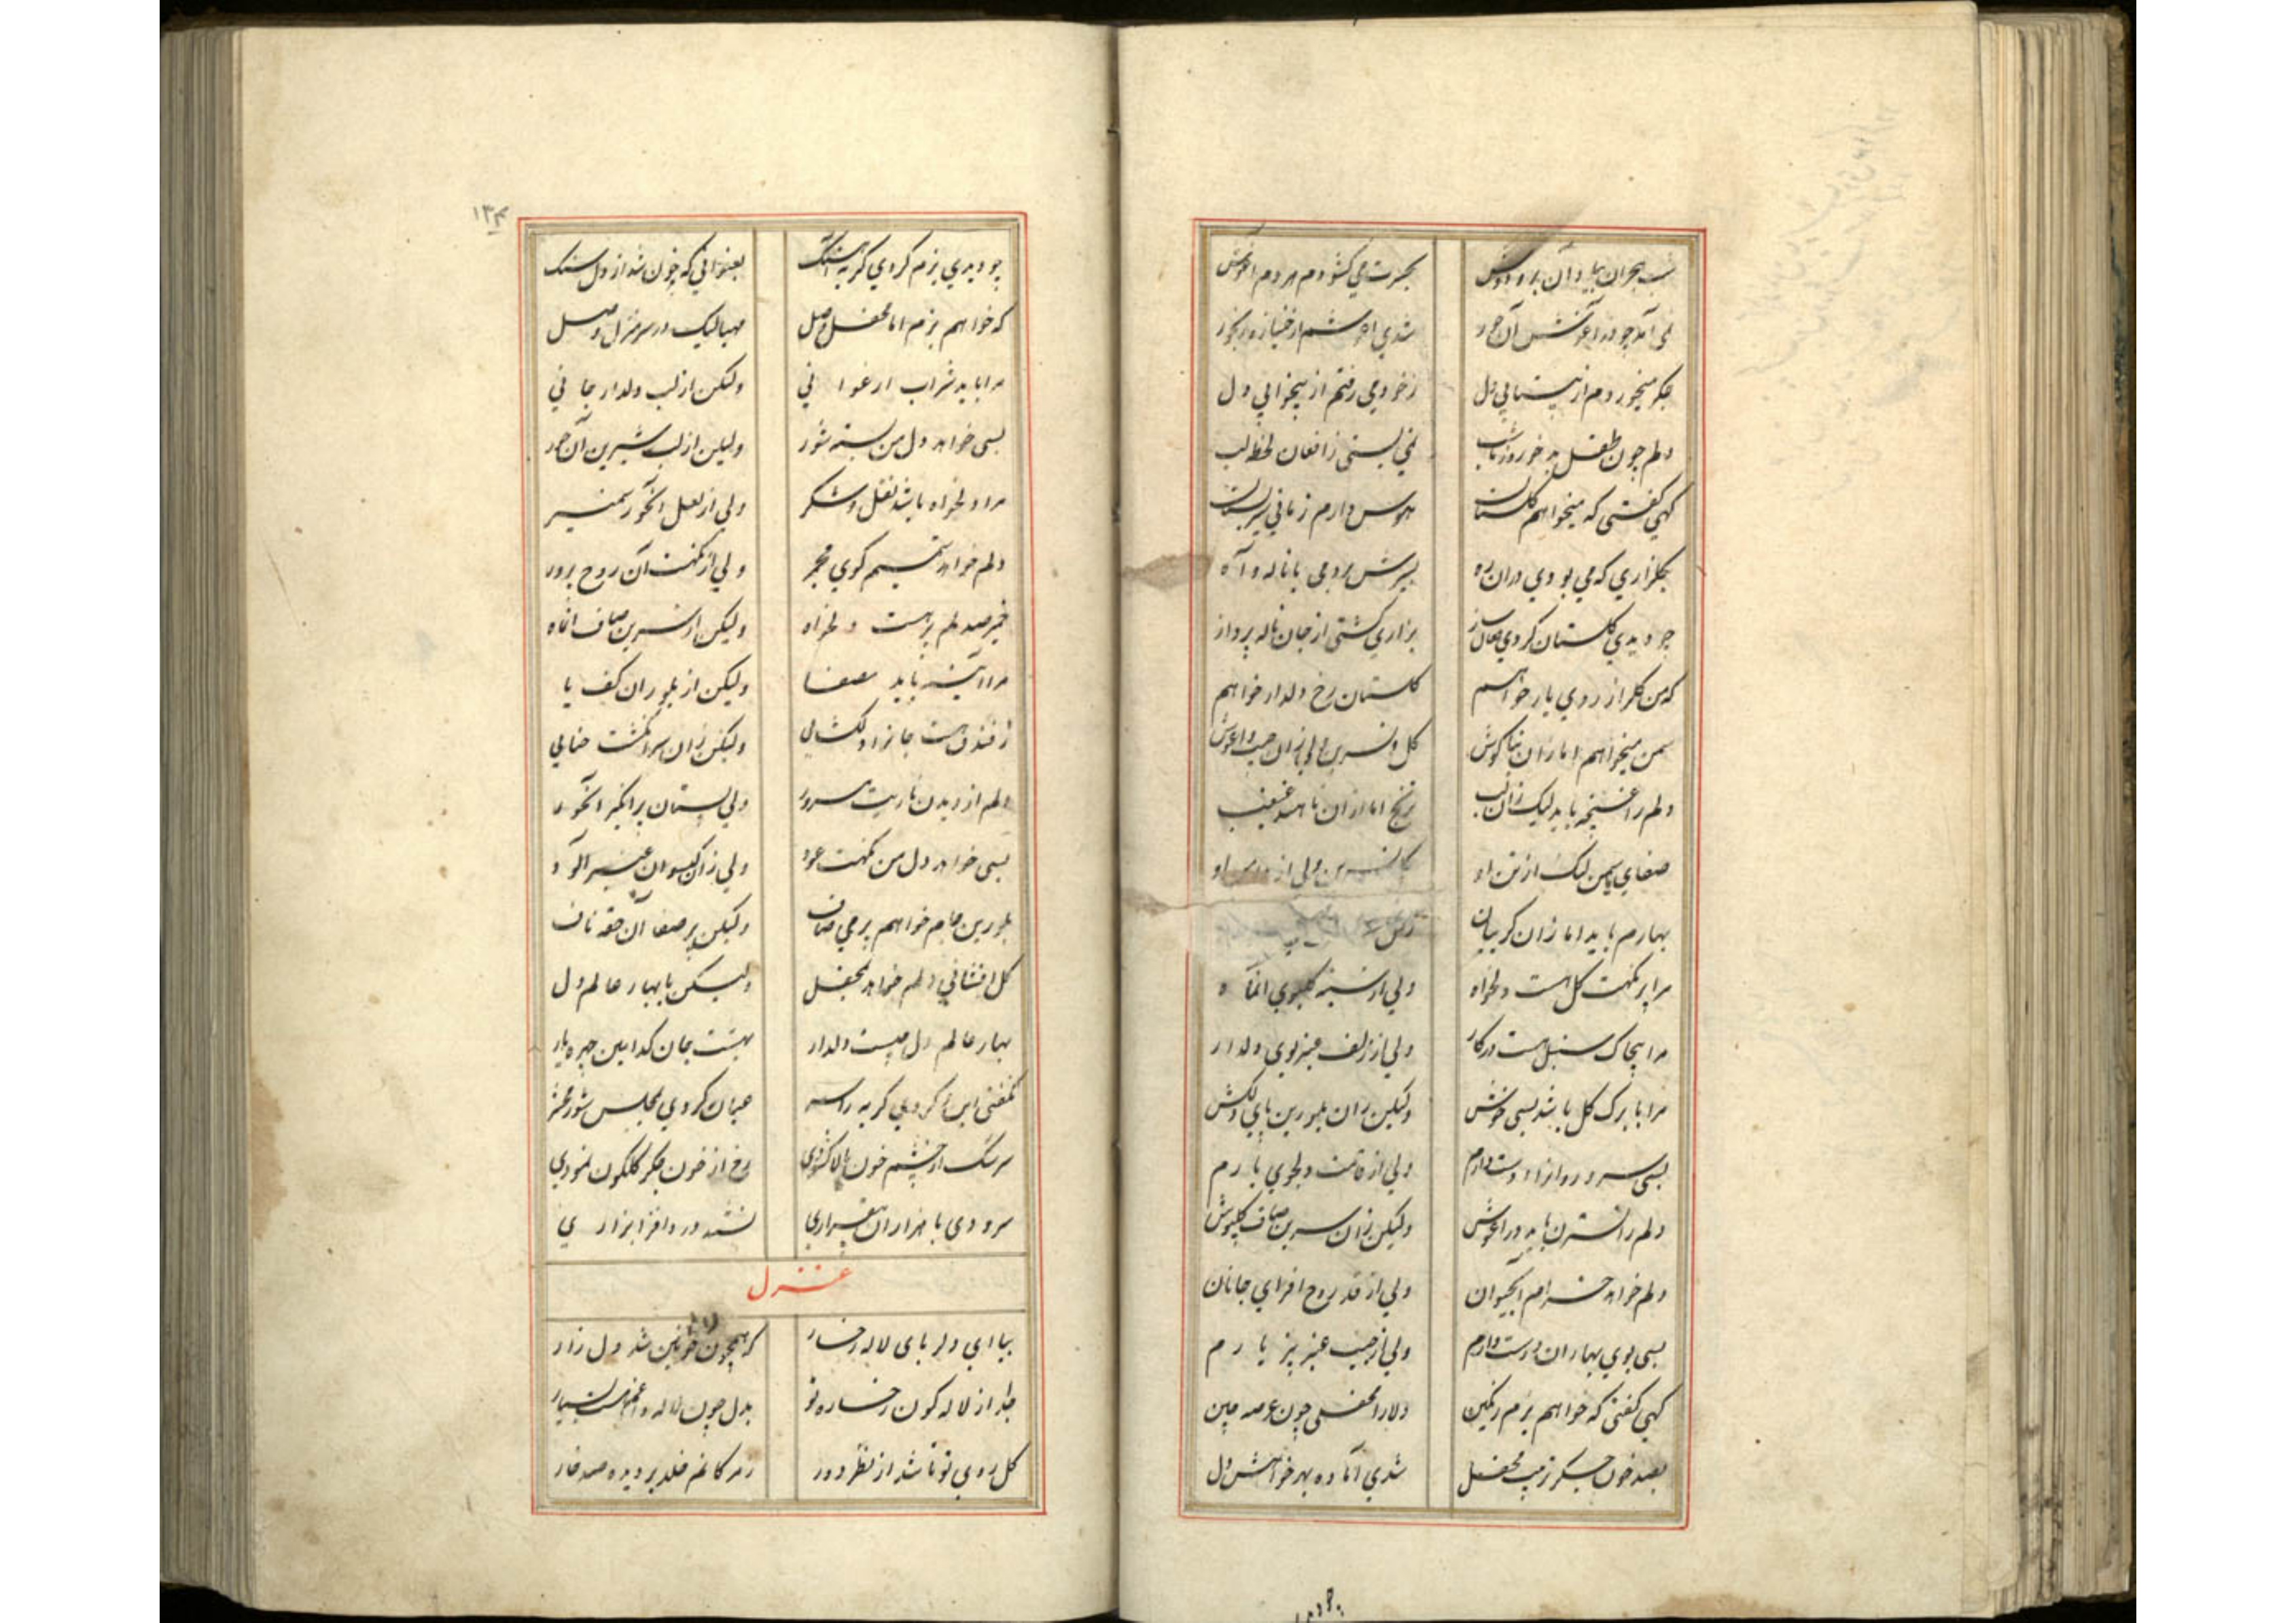 شب هجران بیاد آن بر و دوش
بحسرت می کشودم هر دم آغوش
نمی آمد چو در آغوشش آن حور
شدی آغوشم از خمیازه رنجور
جکر میخوردم از بیتابی دل
ز خود می رفتم از بیخوابی دل
دلم چون طفل بدخو روز تا شب
نمی بستی ز افغان لحظه لب
کهی کفتی که میخواهم کلستان
هوس دارم زمانی سیر بستان
بکلزاری که می بودی دران ره
بسیرش بردمی با ناله و آه
چو دیدی کلستان کردی فغان ساز
بزاری کشتی از جان ناله پرداز
که من کلزار روی یار خواهم
کلستان رخ دلدار خواهم
سمن میخواهم اما زان بناکوش
کل و نسرین ولی زان جیب و آغوش
دلم را غنچه باید لیک زان لب
ترنج اما ازان غبغب
صفای یاسمن لیک از تن او
نسرین ولی از او
بهارم باید اما زان کریبان
مرا بر نکهت کل هست دلخواه
ولی از سینه کلبوی آن ماه
مرا پیچاک سنبل هست در کار
ولی از زلف عنبربوی دلدار
مرا با برک کل باشد بسی خوش
ولیکن زان بلورین پای دلکش
بسی سرو روانرا دوست دارم
ولی از قامت دلجوی یارم
دلم را نسترن باید در آغوش
ولیکن زان سرین صاف کلپوش
دلم خواهد خرام آب حیوان
ولی از قد روح افزای جانان
بسی بوی بهاران دوست دارم
ولی از جیب عنبربیز یارم
کهی کفتی که خواهم بزم رنکین
دلارا محفلی چون عرصه چین
بصد خون جکر ترتیب محفل
شدی آماده بهر خواهش دل
۱۳۴
چو دیدی بزم کردی کریه آهنک
بعنوانی که خون شد از دل سنک
که خواهم بزم اما محفل وصل
مهیا لیک در سرمنزل وصل
مرا باید شراب ارغوانی
ولیکن از لب دلدار جانی
بسی خواهد دل من پسته شور
ولیکن از لب شیرین آن حور
مرا دلخواه باشد نقل و شکر
ولی از لعل آنحور سمنبر
دلم خواهد نسیم کوی مجمر
ولی از نکهت آن روح پرور
ولیکن از سرین صاف آنماه
مرا آئینه باید مصفا
ولیکن از بلور آن کف پا
ز فندق هست جانرا دلکشائی
ولیکن زان سرانکشت حنائی
دلم از دیدن نار است مسرور
ولی پستان برانکیز آنحور
بسی خواهد دل من نکهت عود
ولی زان کیسوان عنبرآلود
بلورین جام خواهم پر می صاف
ولیکن پر صفا آن حقه ناف
کل افشانی دلم خواهد بمحفل
ولیکن با بهار عالم دل
بهار عالم دل چیست دلدار
بهشت جان کدامین چهره یار
بکفتی این و کردی کریه را سر
عیان کردی بمجلس شور محشر
سرشک از چشم خون پالا کشودی
رخ از خون جکر کلکون نمودی
سرودی با هزاران بیقراری
نشید درد افزا بزاری
غزل
بیا ای دلربای لاله رخسار
که همچون لاله خونین شد دل زار
جدا از لاله کون رخساره تو
بدل چون لاله داغم هست بسیار
کل روی تو تا شد از نظر دور
ز مژکانم خلد بر دیده صد خار